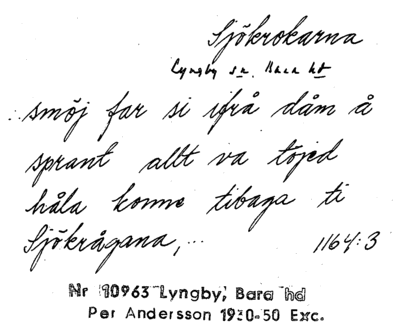 Sjökrokarna
Lyngby sn. Bara hd
..smöj far si ifrå dåm å
sprant allt va tojed
håla komme tibaga ti
Sjökrågana,...
1164:3
Nr 10963 Lyngby, Bara hd
Per Andersson 1930-50 Exc.